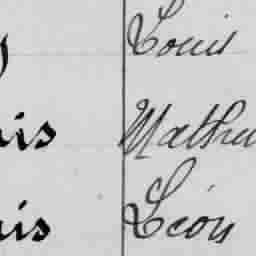 Louis
is Mathu
is Léon